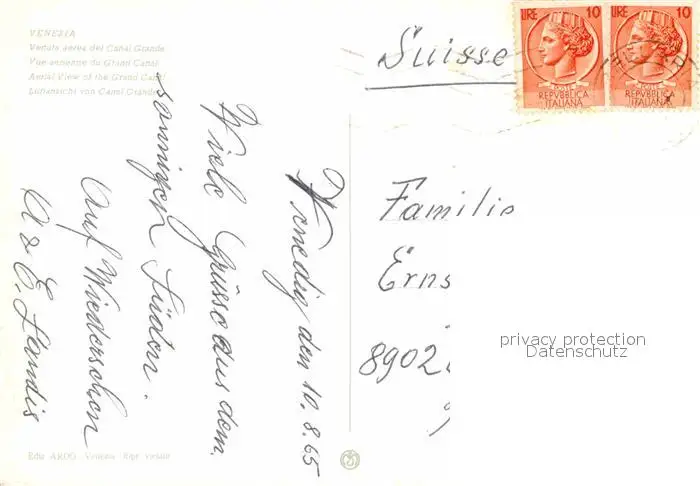 VENEZIA
Veduta aerea del Canal Grande
Vue aerienne du Grand Canal
Aerial View of the Grand Canal
Luftansicht von Canal Grande
Suisse
LIRE 10
POSTE
REPVBBLICA
ITALIANA
LIRE 10
POSTE
REPVBBLICA
ITALIANA
Venedig den 10.8.65
Viele Grüsse aus dem
sonnigen Süden.
Auf Wiedersehen
E. Landis
Familie
Erns
8902
privacy protection
Datenschutz
Ediz ARDO - Venezia Ripr vietata